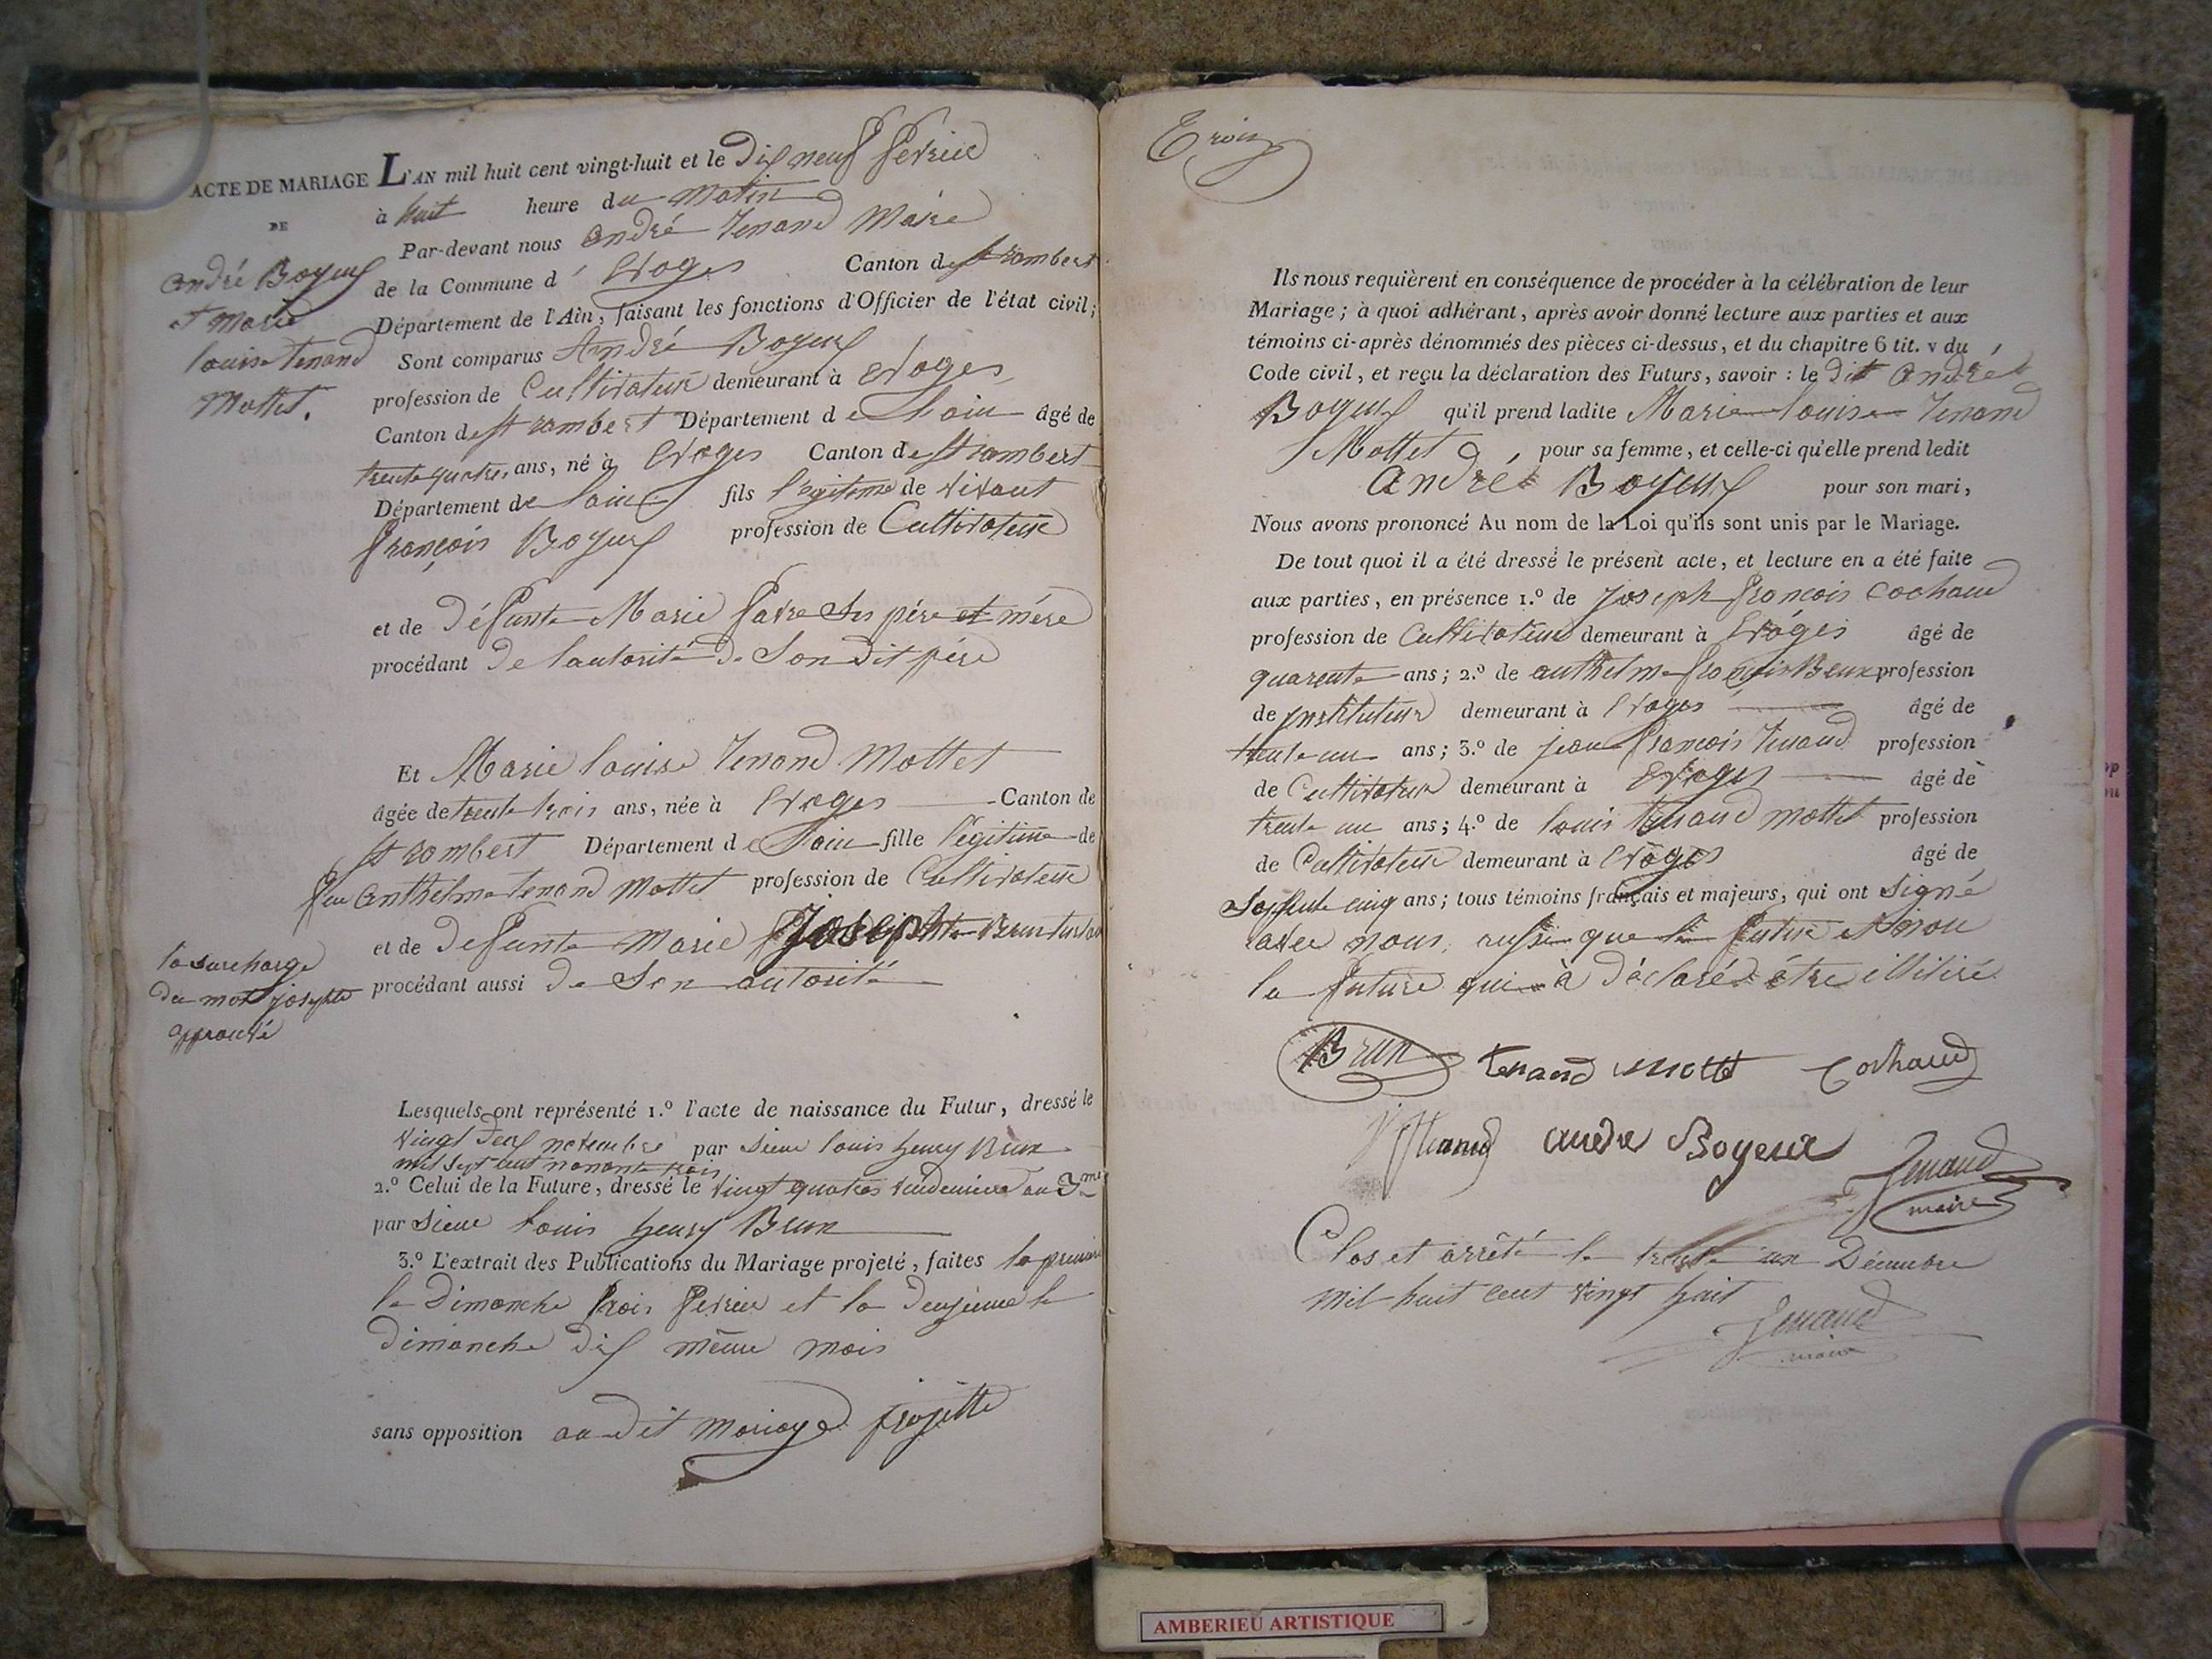 ACTE DE MARIAGE
DE
andré Boyeux
et Marie
louise tenand
Mottet.
L'AN mil huit cent vingt-huit et le Dix neuf fevrier
à huit heure du Matin
Par-devant nous andré Tenand Maire
de la Commune d' Evoges Canton de st rambert
Département de l'Ain, faisant les fonctions d'Officier de l'état civil;
Sont comparus André Boyeux
profession de Cultivateur demeurant à Evoges
Canton de st rambert Département de Lain âgé de
trente quatre ans, né à Evoges Canton de st rambert
Département de Lain fils légitime de vivant
françois Boyeux profession de Cultivateur
et de défunte Marie favre ses père et mère
procédant de lautorité de Son dit père
Et Marie louise Tenand Mottet
âgée de trente trois ans, née à Evoges Canton de
st rambert Département de Lain fille légitime de
feu anthelme tenand Mottet profession de Cultivateur
et de defunte Marie Josephte Brun
procédant aussi de Son autorité
la surcharge
du mot josephte
approuvé
Lesquels ont représenté 1.º l'acte de naissance du Futur, dressé le
vingt deux novembre par sieur louis henry Brun
mil sept cent nonante trois
2.º Celui de la Future, dressé le vingt quatre vendemiere an 3me
par sieur louis henry Brun
3.º L'extrait des Publications du Mariage projeté, faites la premiere
le Dimanche trois fevrier et la deuxieme le
dimanche dix même mois
sans opposition au dit mariage projetté
Trois
Ils nous requièrent en conséquence de procéder à la célébration de leur
Mariage; à quoi adhérant, après avoir donné lecture aux parties et aux
témoins ci-après dénommés des pièces ci-dessus, et du chapitre 6 tit. v du
Code civil, et reçu la déclaration des Futurs, savoir : le dit André
Boyeux qu'il prend ladite Marie louise Tenand
Mottet pour sa femme, et celle-ci qu'elle prend ledit
André Boyeux pour son mari,
Nous avons prononcé Au nom de la Loi qu'ils sont unis par le Mariage.
De tout quoi il a été dressé le présent acte, et lecture en a été faite
aux parties, en présence 1.º de Joseph françois Cochaud
profession de Cultivateur demeurant à Evoges âgé de
quarente ans; 2.º de anthelme françois Brun profession
de jnstituteur demeurant à Evoges âgé de
trente un ans; 3.º de jean françois Tenand profession
de Cultivateur demeurant à Evoges âgé de
trente un ans; 4.º de louis tenand mottet profession
de Cultivateur demeurant à Evoges âgé de
cinq ans; tous témoins français et majeurs, qui ont signé
avec nous, aussi que le futur et non
la future qui a déclaré être illitiré
Brun tenand mottet Cochaud
tenand andre Boyeux Tenand
maire
Clos et arrêté le trente un Décembre
mil huit cent vingt huit
Tenand
maire
AMBERIEU ARTISTIQUE